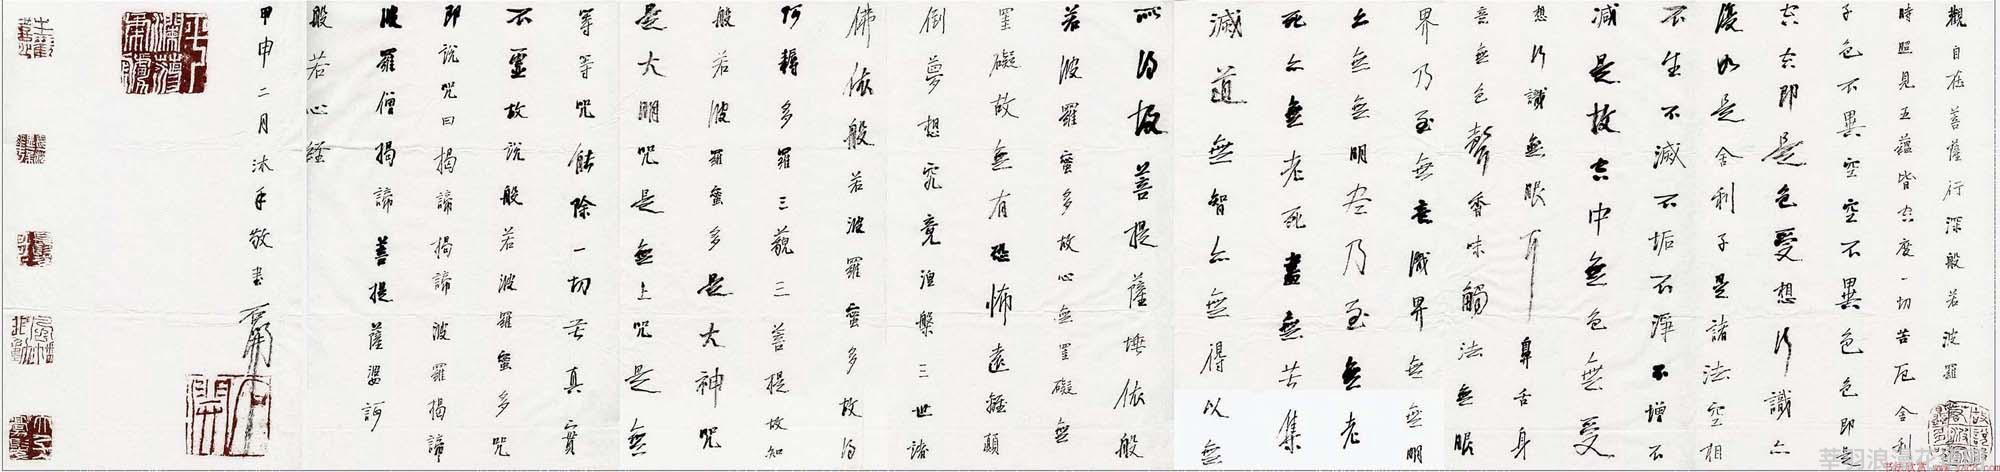 觀自在菩薩行深般若波羅
時照見五蘊皆空度一切苦厄舍利
子色不異空空不異色色即是
空空即是色受想行識亦
復如是舍利子是諸法空相
不生不滅不垢不淨不增不
減是故空中無色無受
想行識無眼耳鼻舌身
意無色聲香味觸法無眼
界乃至無意識界無無明
亦無無明盡乃至無老
死亦無老死盡無苦集
滅道無智亦無得以無
所得故菩提薩埵依般
若波羅蜜多故心無罣礙無
罣礙故無有恐怖遠離顛
倒夢想究竟涅槃三世諸
佛依般若波羅蜜多故得
阿耨多羅三藐三菩提故知
般若波羅蜜多是大神咒
是大明咒是無上咒是無
等等咒能除一切苦真實
不虛故說般若波羅蜜多咒
即說咒曰揭諦揭諦波羅揭諦
波羅僧揭諦菩提薩婆訶
般若心經
甲申二月沐手敬書 石開
石開